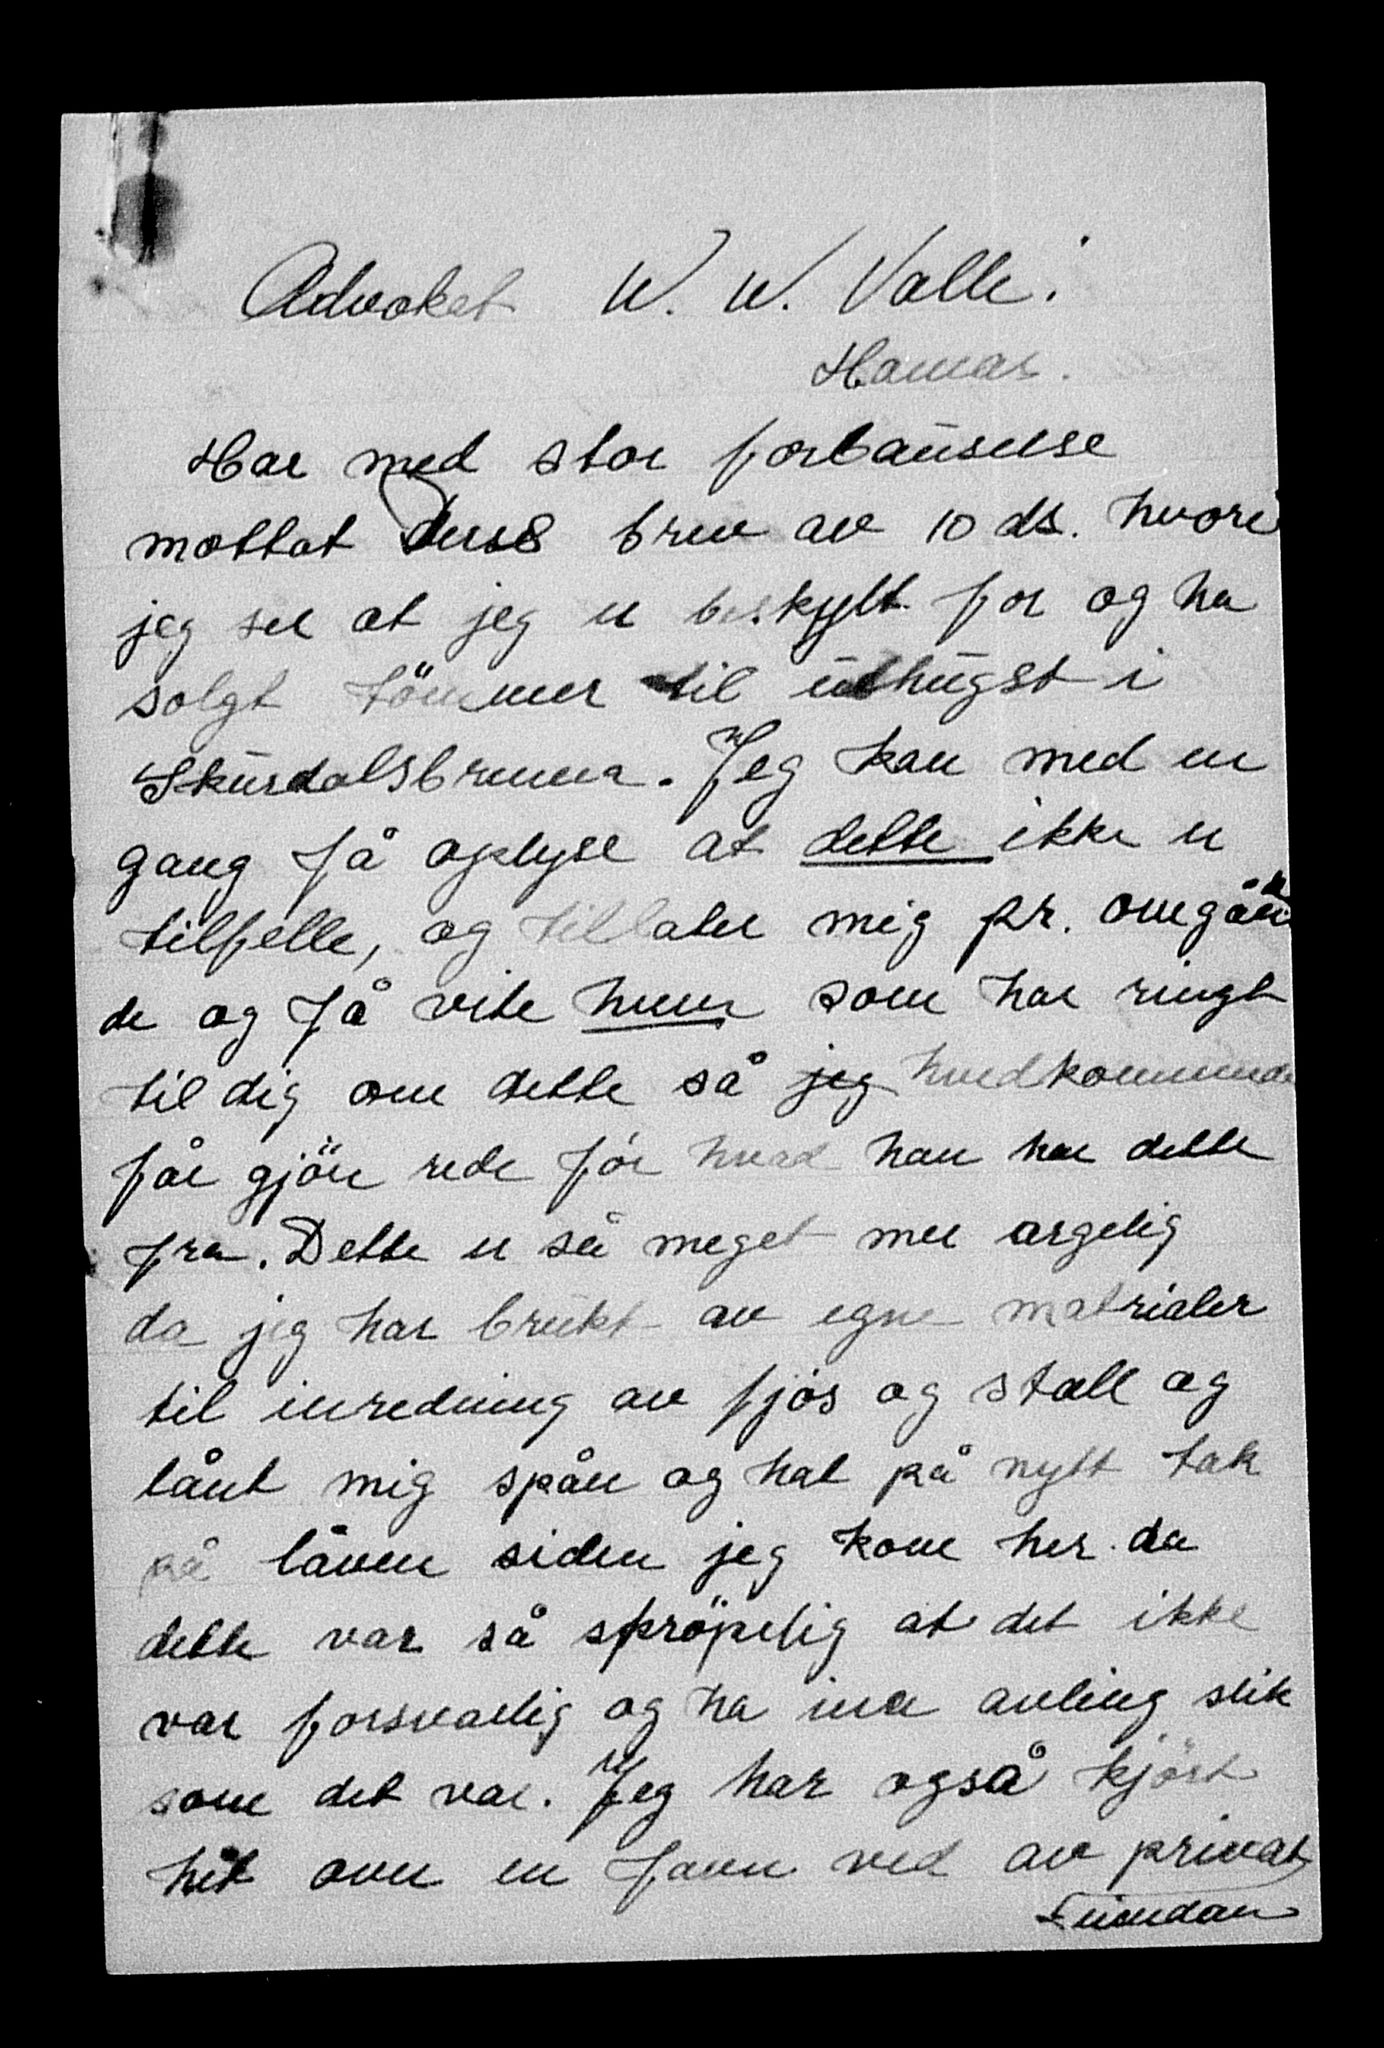 Advokat W. W. Valle.
Hamar.
Har med stor forbauselse
mottat Deres brev av 10 ds. hvori
jeg ser at jeg er beskyldt for og ha
solgt tömmer til uthugst i
Skurdalsbrenna. Jeg kan med en
gang få oplyse at dette ikke er
tilfelle, og tillater mig pr. omgåen
de og få vite hvem som har ringt
til dig om dette så jeg hvedkommende
får gjöre rede for hvad han har dette
fra. Dette er så meget mer argelig
da jeg har brukt av egne matrialer
til inredning av fjös og stall og
lånt mig spån og hat på nytt tak
på låven siden jeg kom her da
dette var så skröpelig at det ikke
var forsvarlig og ha inn avling slik
som det var. Jeg har også kjört
hit over en favn ved av privat